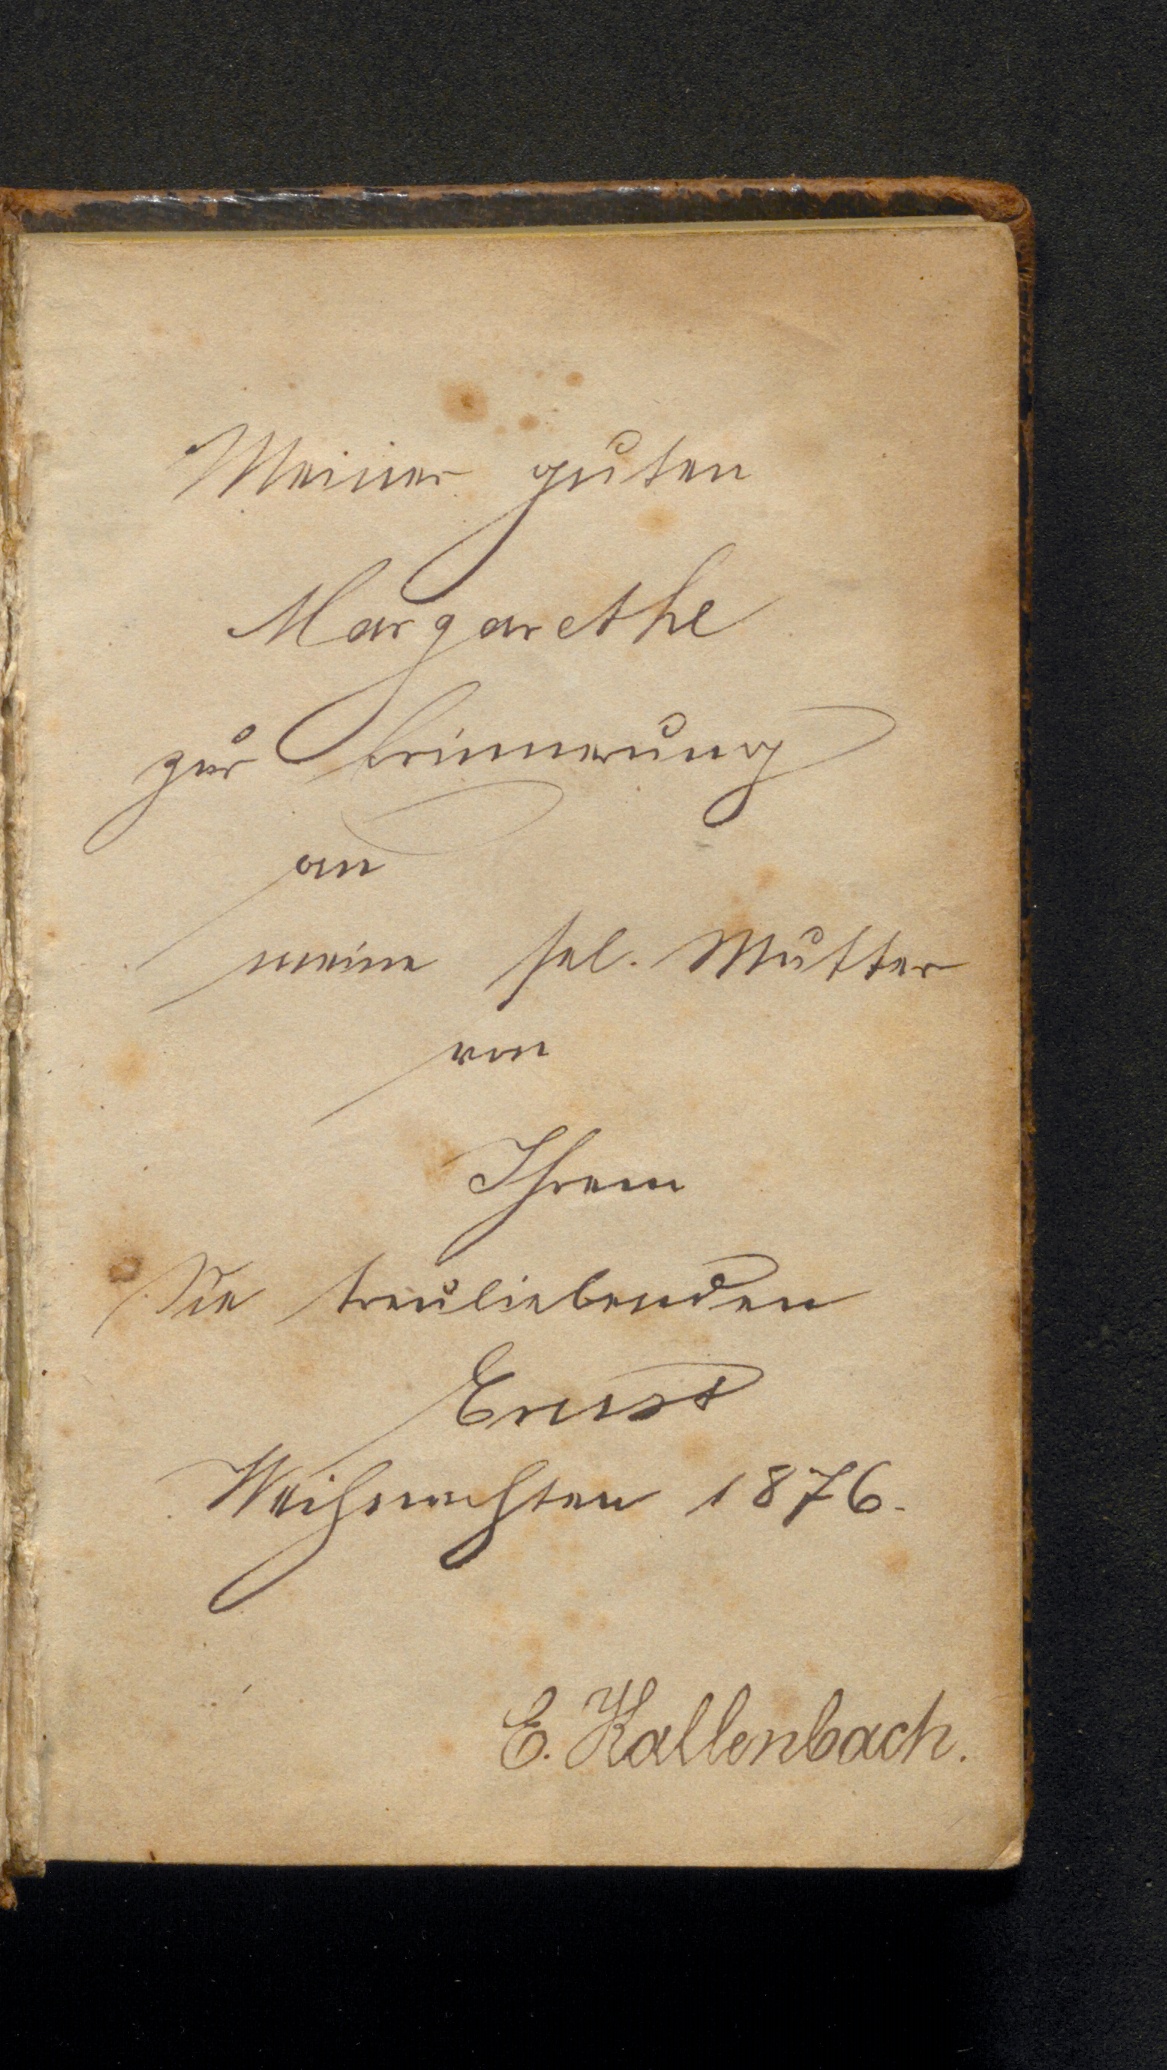 Meiner guten
Margarethe
zur Erinnerung
an
meine sel. Mutter
von
Ihrem
Sie treuliebenden
Ernst
Weihnachten 1876.
E. Kallenbach.